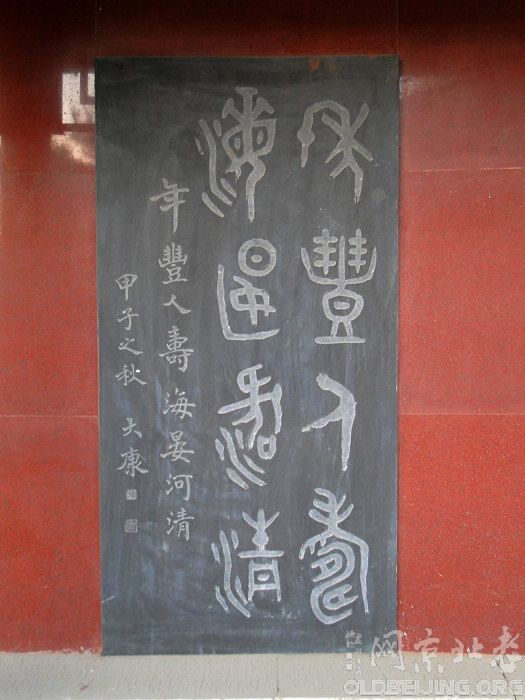 年豐人壽
海晏河清
年豐人壽海晏河清
甲子之秋 大康
老北京网
OLDBEIJING.ORG